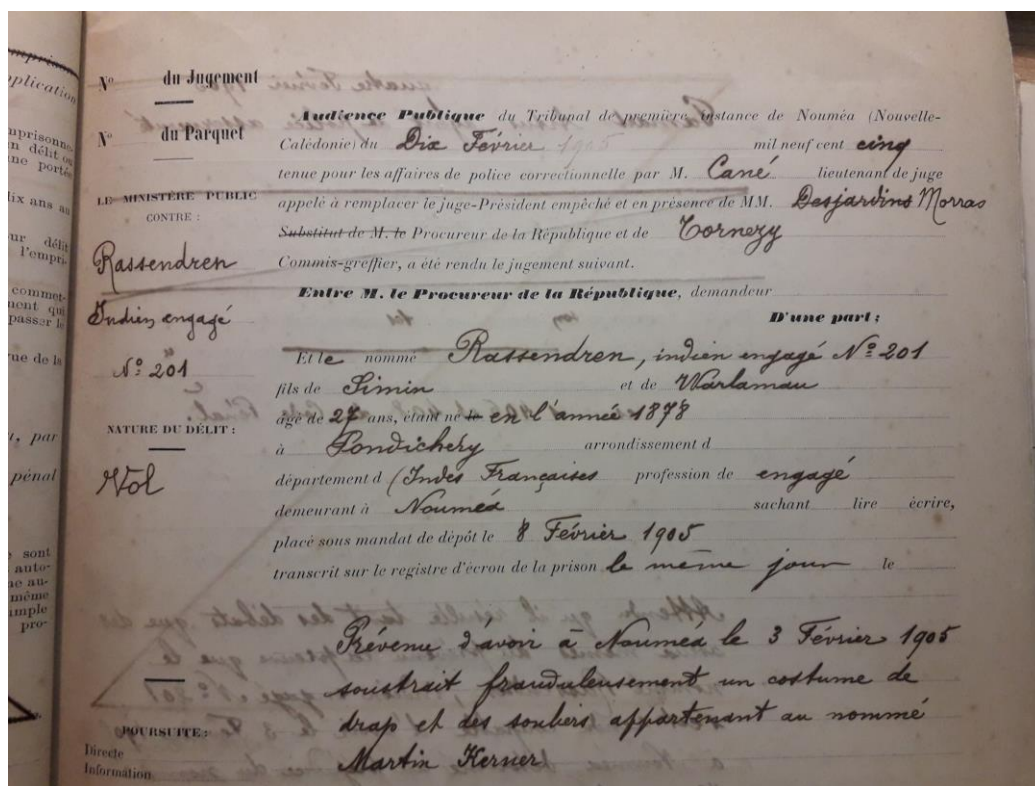 N° du Jugement
N° du Parquet
LE MINISTÈRE PUBLIC
CONTRE :
Rassendren
Indien engagé
N° 201
NATURE DU DÉLIT :
Vol
POURSUITE :
Directe
Information
Audience Publique du Tribunal de première instance de Nouméa (Nouvelle-
Calédonie) du Dix Février 1905 mil neuf cent cinq
tenue pour les affaires de police correctionnelle par M. Cané lieutenant de juge
appelé à remplacer le juge-Président empêché et en présence de MM. Desjardins Morras
Substitut de M. le Procureur de la République et de Tornezy
Commis-greffier, a été rendu le jugement suivant.
Entre M. le Procureur de la République, demandeur
D'une part ;
Et le nommé Rassendren, indien engagé N° 201
fils de Simin et de Warlamau
âgé de 27 ans, étant né le en l'année 1878
à Pondichery arrondissement d
département d (Indes Françaises profession de engagé
demeurant à Nouméa sachant lire écrire,
placé sous mandat de dépôt le 8 Février 1905
transcrit sur le registre d'écrou de la prison le même jour le
Prévenu d'avoir à Nouméa le 3 Février 1905
soustrait frauduleusement un costume de
drap et des souliers appartenant au nommé
Martin Kerner